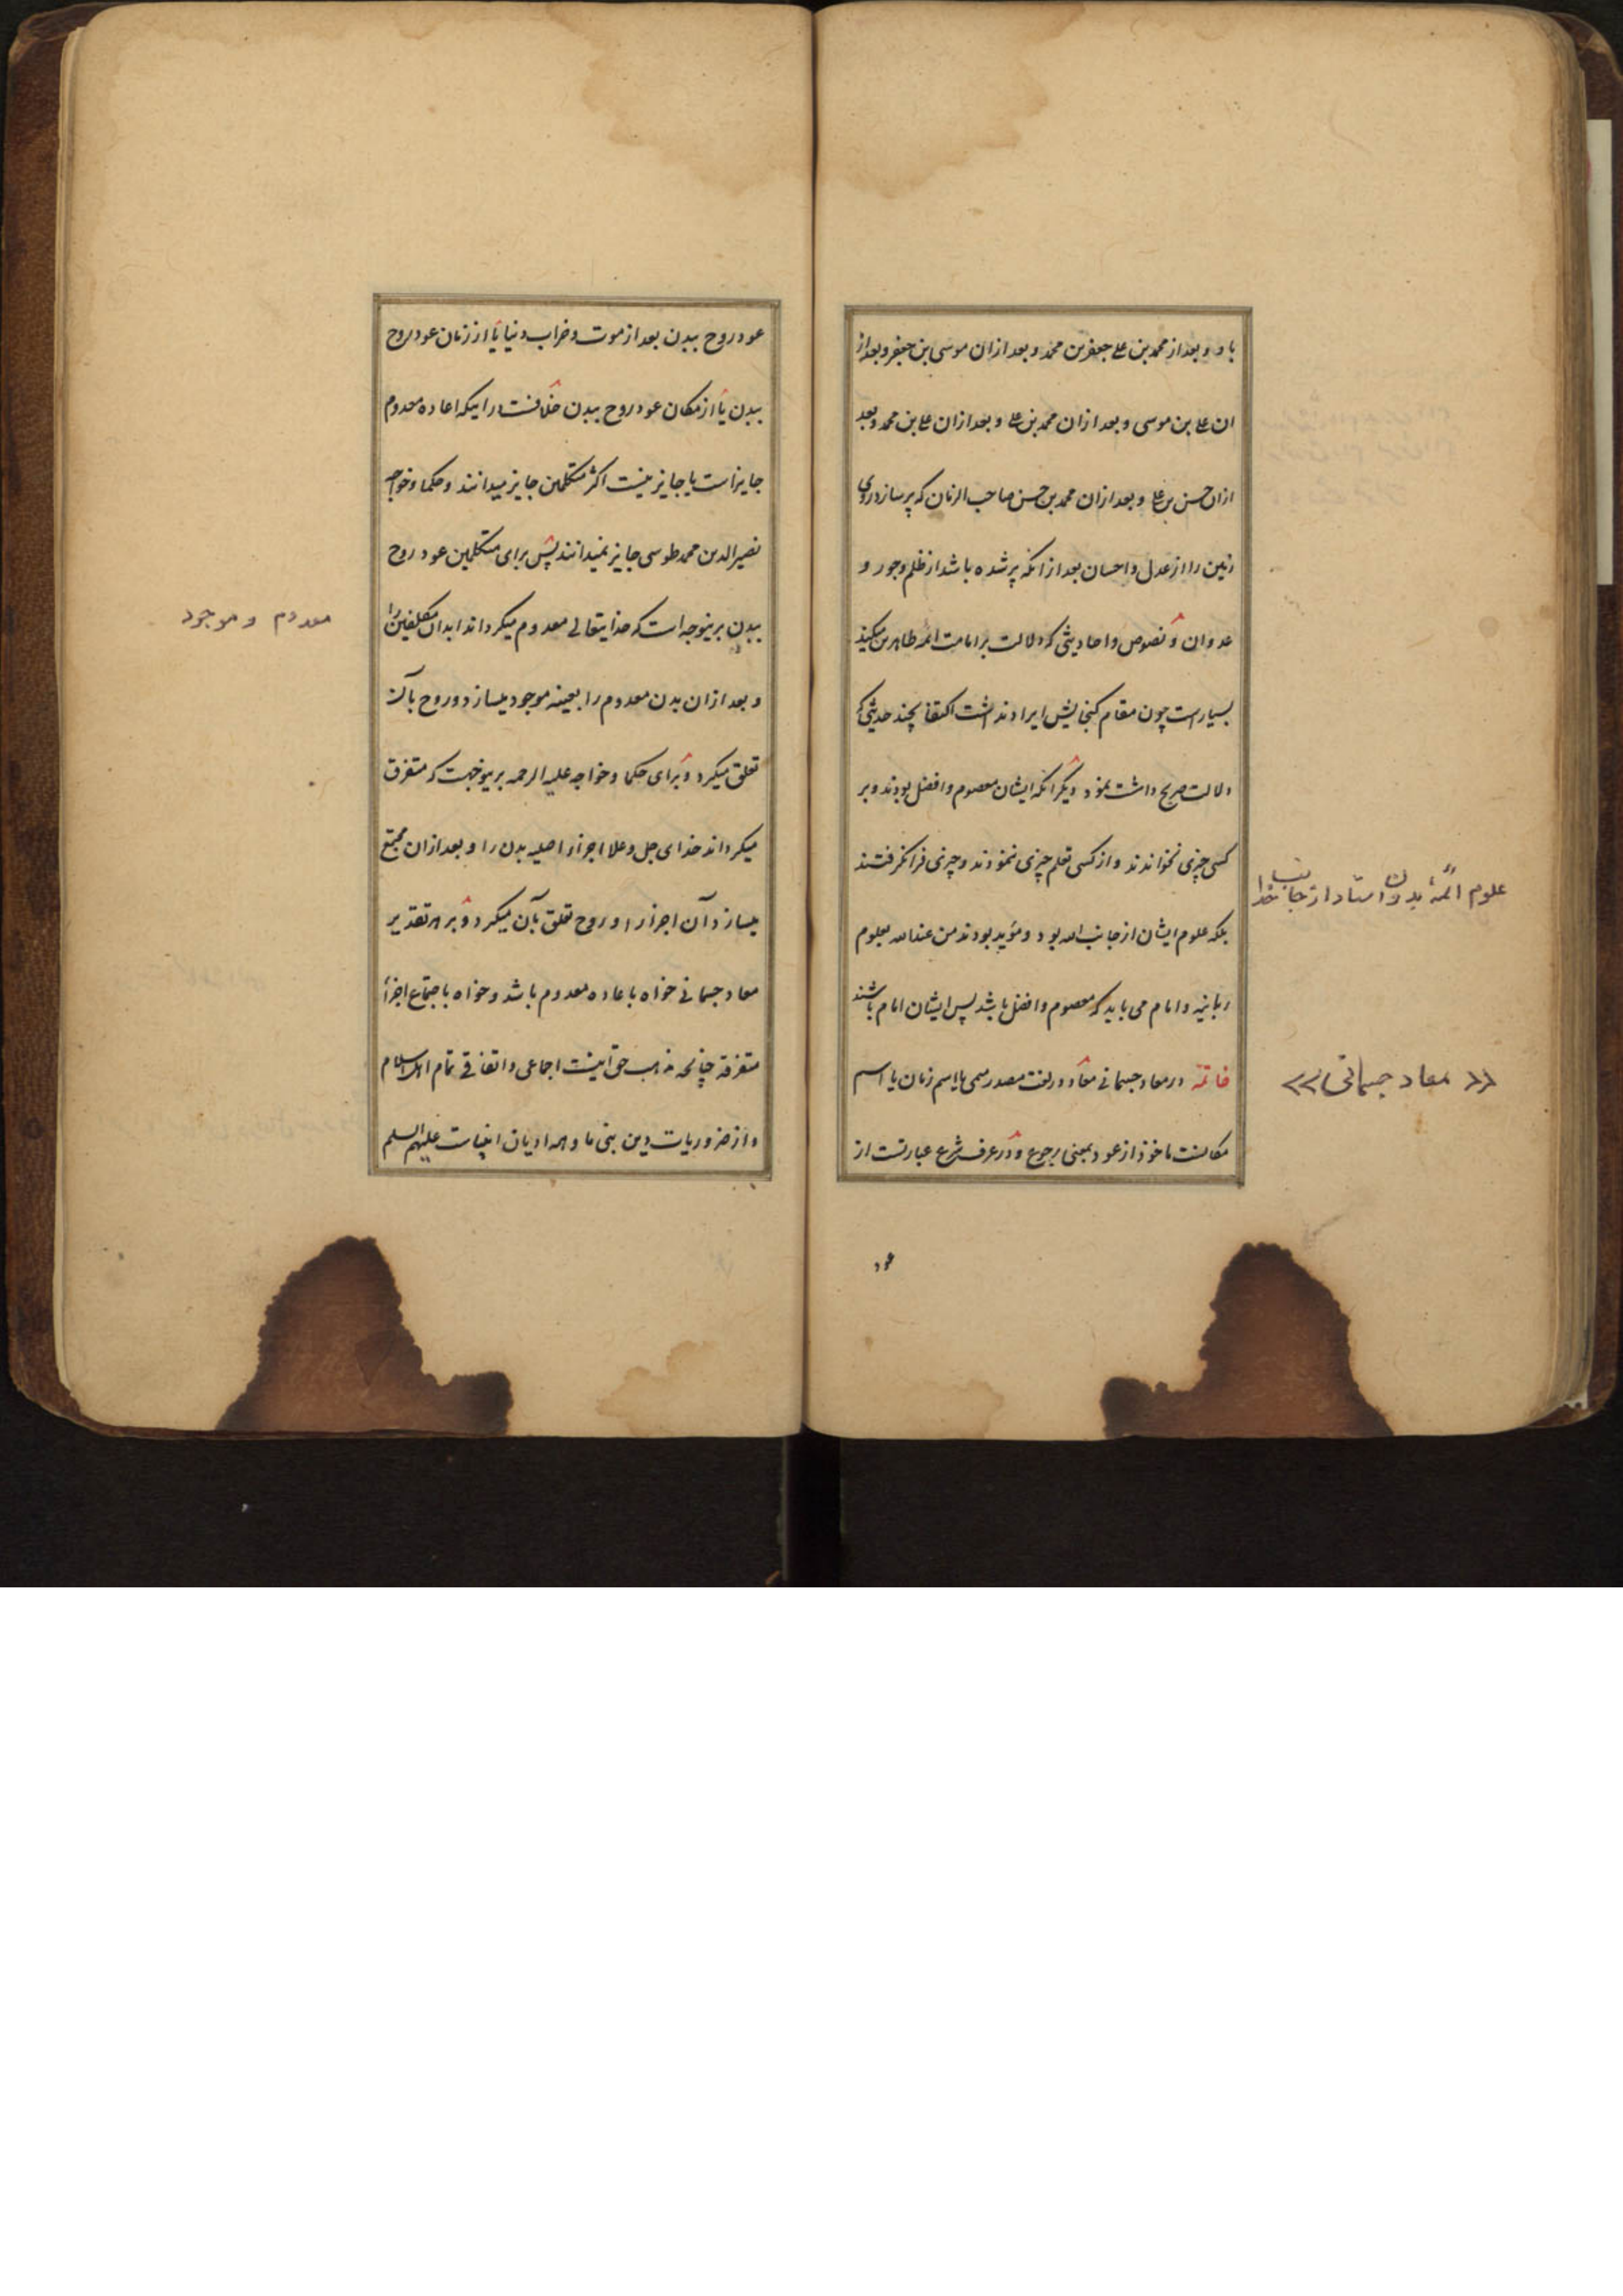 باو و بعد از محمد بن علی جعفر بن محمد و بعد ازان موسی بن جعفر و بعد از
ان علی بن موسی و بعد ازان محمد بن علی و بعد ازان علی بن محمد و بعد
ازان حسن بن علی و بعد ازان محمد بن حسن صاحب الزمان که پر سازد روی
زمین را از عدل و احسان بعد از انکه پر شده باشد از ظلم و جور و
عدوان و نصوص و احادیثی که دلالت بر امامت ائمه طاهرین میکند
بسیار است چون مقام گنجایش ایراد نداشت اکتفا بچند حدیثی که
دلالت صریح داشت نمود دیگر انکه ایشان معصوم و افضل بودند و بر
کسی چیزی نخواندند و از کسی تعلم چیزی ننمودند و چیزی فرا نگرفتند
بلکه علوم ایشان از جانب الله بود و مؤید بودند من عند الله بعلوم
ربانیه و امام می باید که معصوم و افضل باشد پس ایشان امام باشند
خاتمه در معاد جسمانی معاد در لغت مصدر میمی یا اسم زمان یا اسم
مکانست ماخوذ از عود بمعنی رجوع و در عرف شرع عبارتست از
عود
علوم ائمهٔ بدون استاد از جانب خدا
«معاد جسمانی»
عود روح ببدن بعد از موت و خراب دنیا یا از زمان عود روح
ببدن یا از مکان عود روح ببدن خلافست در اینکه اعاده معدوم
جایز است یا جایز نیست اکثر متکلمین جایز میدانند و حکما و خواجه
نصیر الدین محمد طوسی جایز نمیدانند پس برای متکلمین عود روح
ببدن برینوجه است که خدایتعالی معدوم میکرداند ابدان مکلفین را
و بعد ازان بدن معدوم را بعینه موجود میسازد و روح بآن
تعلق میکرد و برای حکما و خواجه علیه الرحمه برینوجهست که متفرق
میکرداند خدای جل و علا اجزاء اصلیه بدن را و بعد ازان مجتمع
میسازد آن اجزا را و روح تعلق بآن میکرد و بر هر تقدیر
معاد جسمانی خواه باعاده معدوم باشد و خواه باجتماع اجزاء
متفرقه چنانچه مذهب حق اینست اجماعی و اتفاقی تمام اهل اسلام
و از ضروریات دین نبی ما و همه ادیان انبیاست علیهم السلم
معدوم و موجود